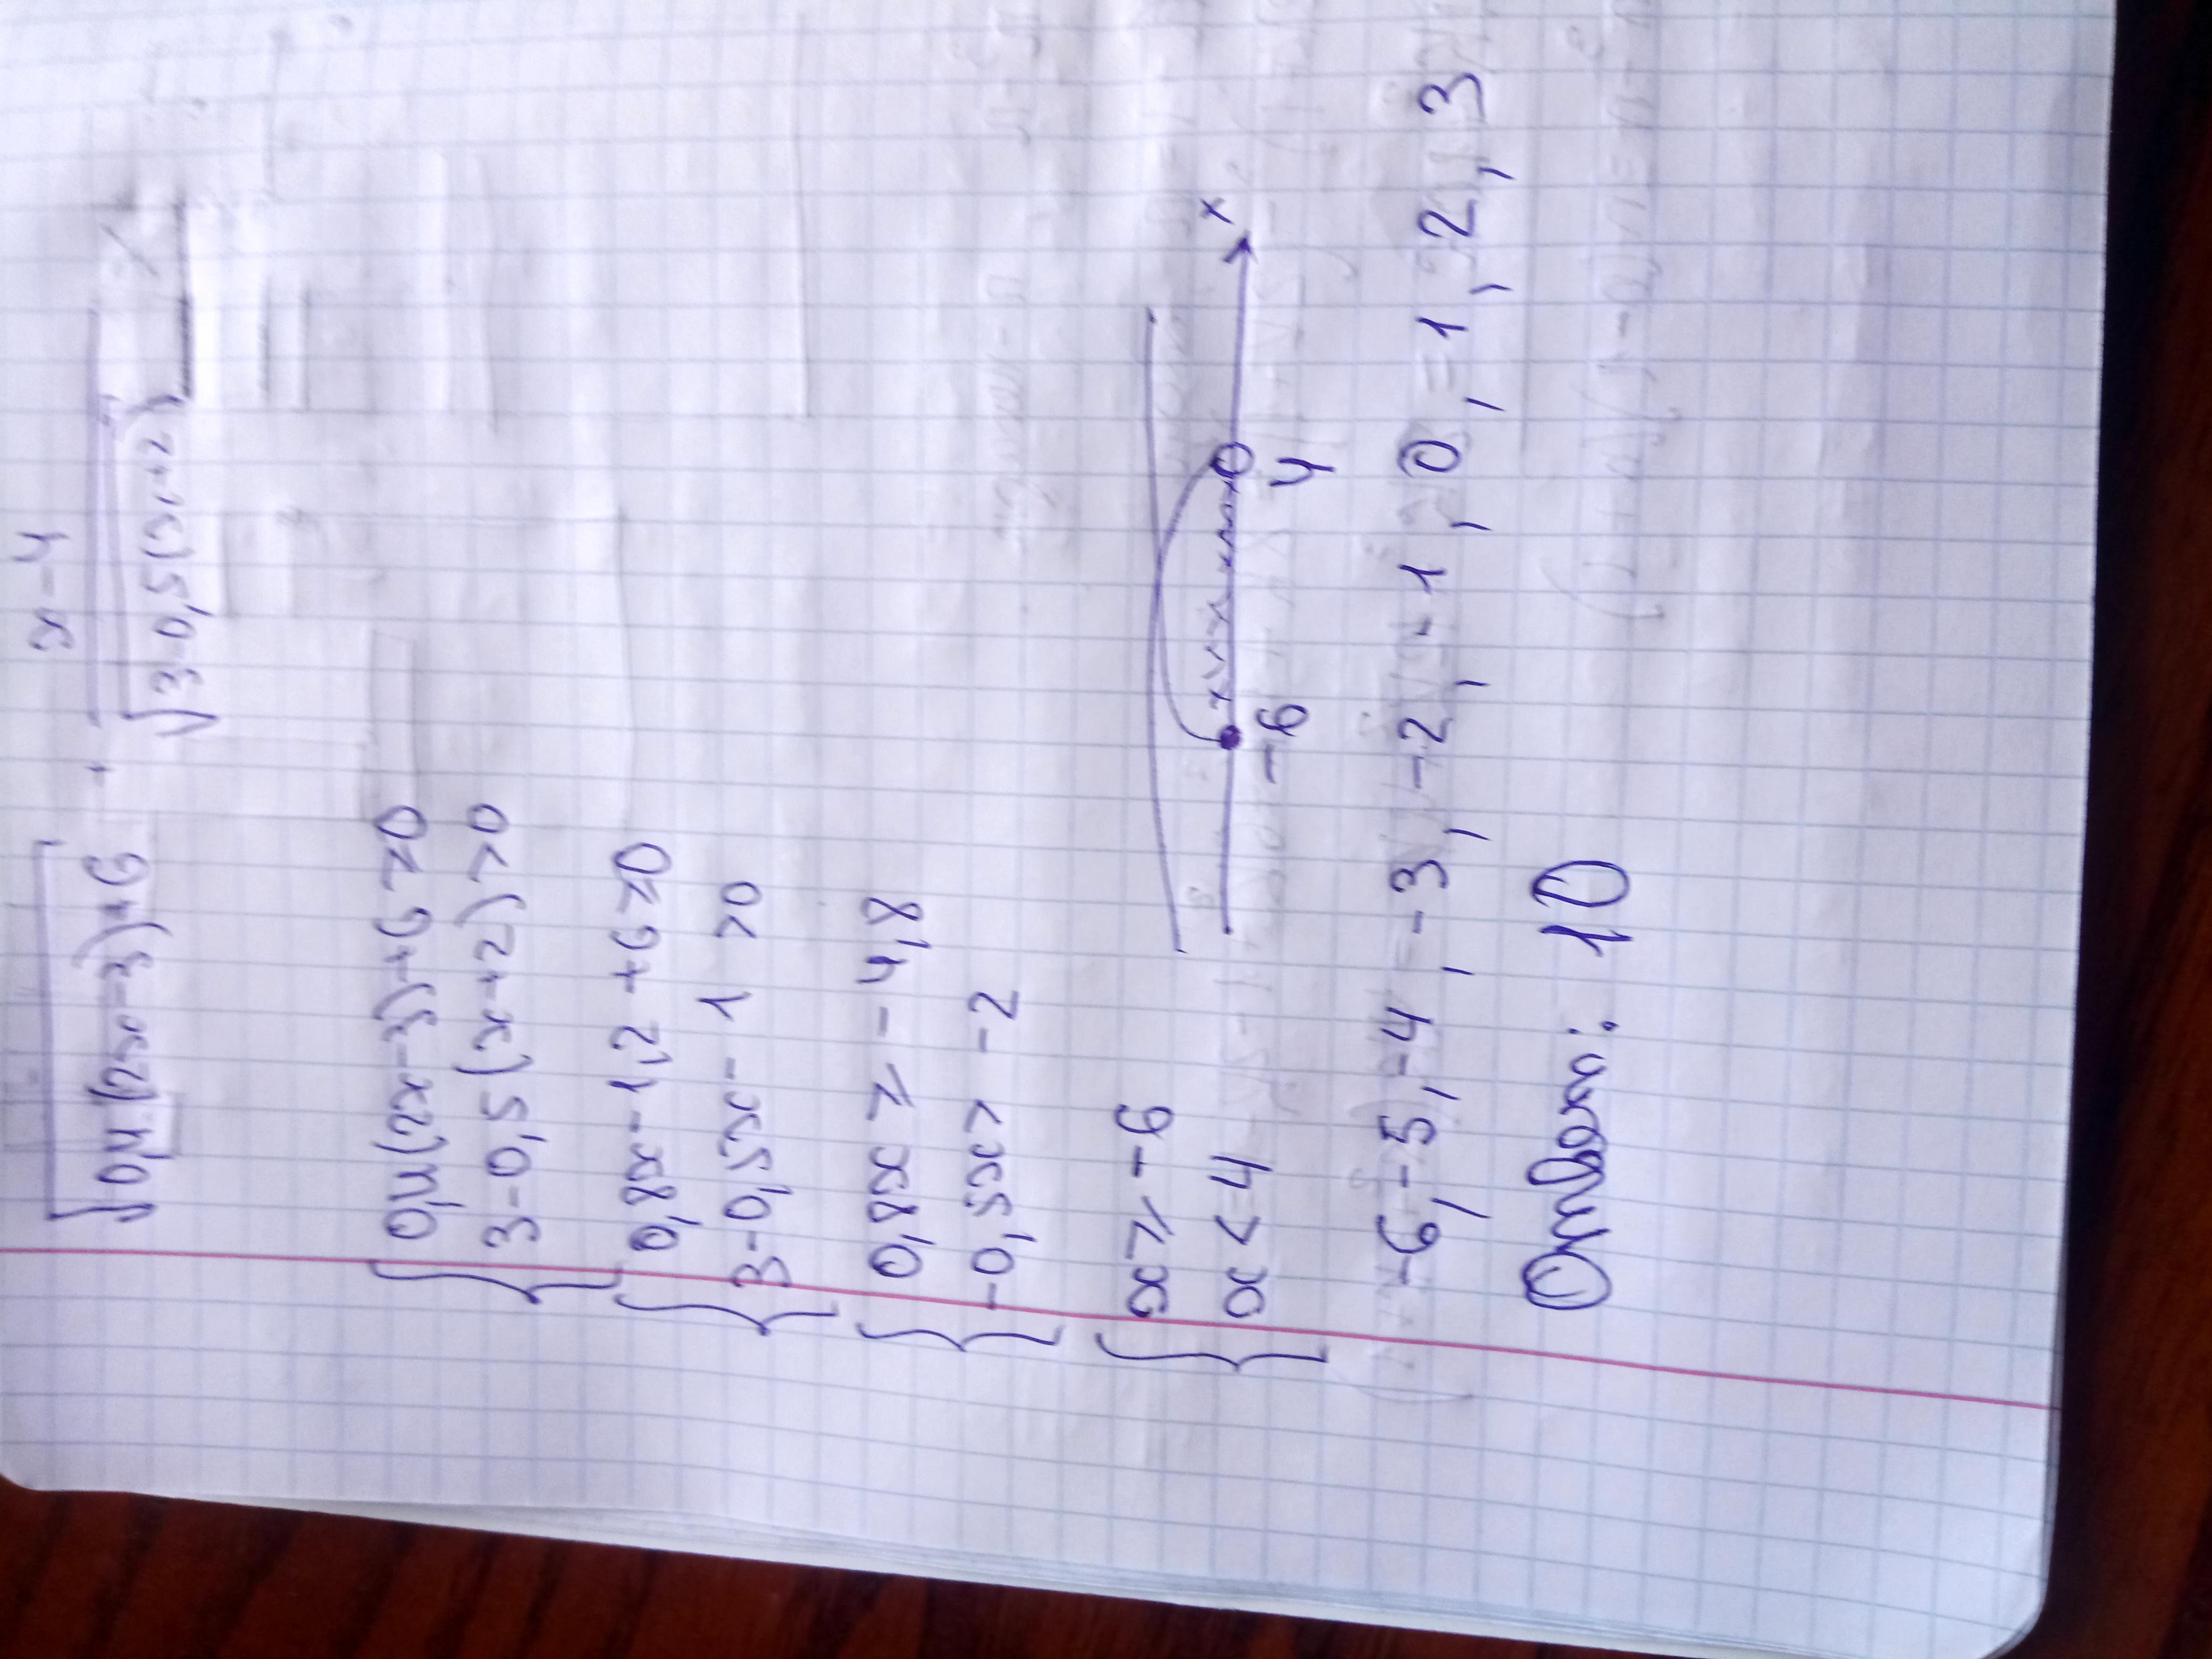 √0,4(2x-3)+6 + x-4
√3-0,5(x+2)
0,4(2x-3)+6≥0
3-0,5(x+2)>0
0,8x-1,2+6≥0
3-0,5x-1>0
0,8x≥-4,8
-0,5x>-2
x≥-6
x<4
-6 4 x
-6,-5,-4,-3,-2,-1,0,1,2,3
Ответ: 10